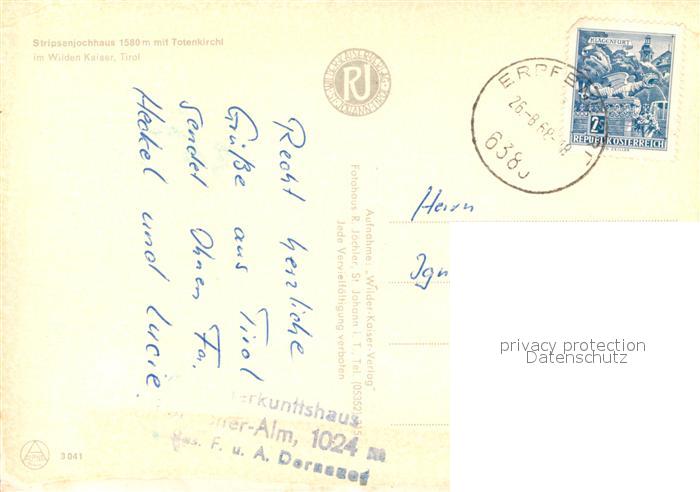 Stripsenjochhaus 1580 m mit Totenkirchl
im Wilden Kaiser, Tirol
RJ
KLAGENFURT
2
REPUBLIK ÖSTERREICH
26.-8.68-18
638
Recht herzliche
Grüße aus Tirol
sendet Ihnen Fa.
Heckel und Lucie.
Aufnahme: „Wilder-Kaiser-Verlag"
Fotohaus R. Jöchler, St. Johann i. T., Tel. (05352)
Jede Vervielfältigung verboten
Herrn
Ign
privacy protection
Datenschutz
erkunftshaus
er-Alm, 1024 m
Bes. F. u. A.
3041